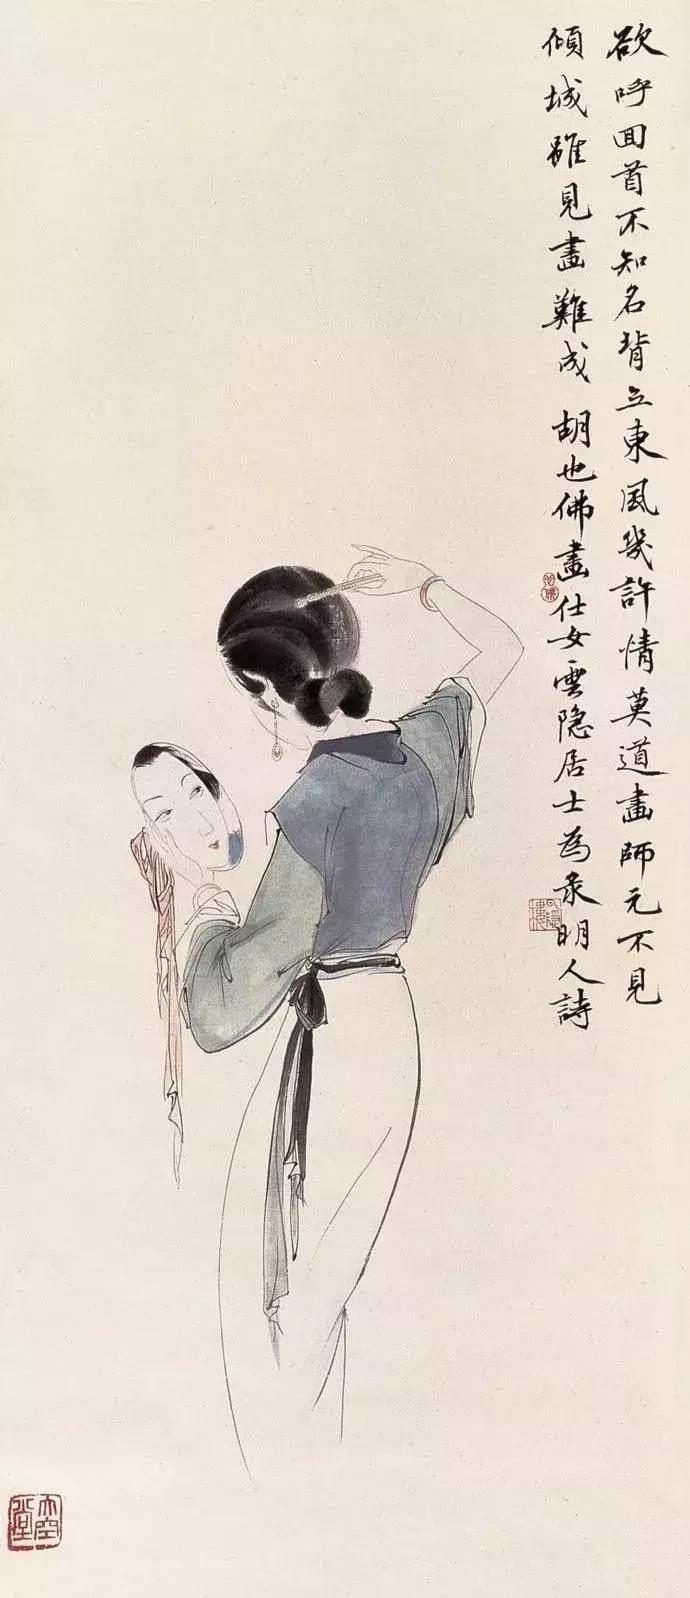 欲呼回首不知名背立東風幾許情莫道畫師元不見
傾城雖見畫難成 胡也佛畫仕女雲隐居士為录明人詩
大空堂